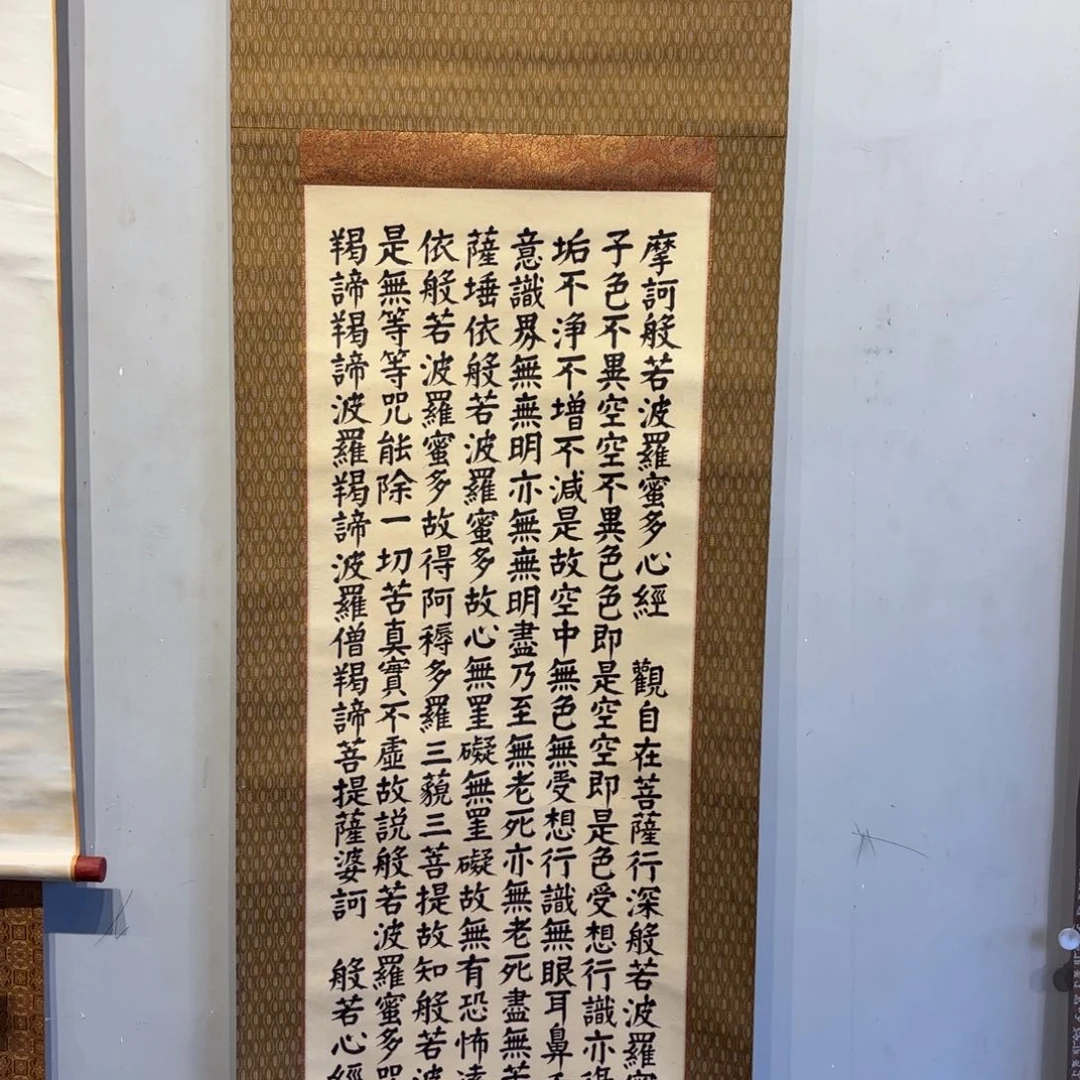 摩訶般若波羅蜜多心經 觀自在菩薩行深般若波羅蜜
子色不異空空不異色色即是空空即是色受想行識亦得
垢不浄不增不減是故空中無色無受想行識無眼耳鼻
意識界無無明亦無無明盡乃至無老死亦無老死盡無苦
薩埵依般若波羅蜜多故心無罣礙無罣礙故無有恐怖遠
依般若波羅蜜多故得阿耨多羅三藐三菩提故知般若波
是無等等咒能除一切苦真實不虛故説般若波羅蜜多咒
羯諦羯諦波羅羯諦波羅僧羯諦菩提薩婆訶 般若心經